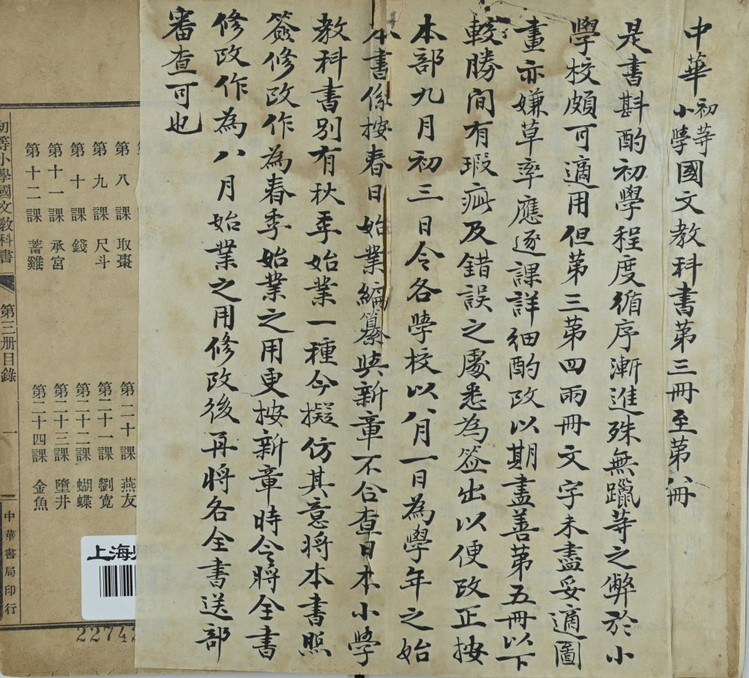 中華初等小學國文教科書第三冊至第八冊
是書斟酌初學程度循序漸進殊無躐等之弊於小
學校頗可適用但第三第四兩冊文字未盡妥適圖
畫亦嫌草率應逐課詳細酌改以期盡善第五冊以下
較勝間有瑕疵及錯誤之處悉為簽出以便改正按
本部九月初三日令各學校以八月一日為學年之始
本書係按春日始業編纂與新章不合查日本小學
教科書別有秋季始業一種今擬仿其意將本書照
簽修改作為春季始業之用更按新章時令將全書
修改作為八月始業之用修改後再將各全書送部
審查可也
第八課 取棗
第九課 尺斗
第十課 錢
第十一課 承宮
第十二課 蓄雞
第二十課 燕友
第二十一課 劉寬
第二十二課 蝴蝶
第二十三課 墮井
第二十四課 金魚
初等小學國文教科書 第三册目錄 一 中華書局印行
上海
22742